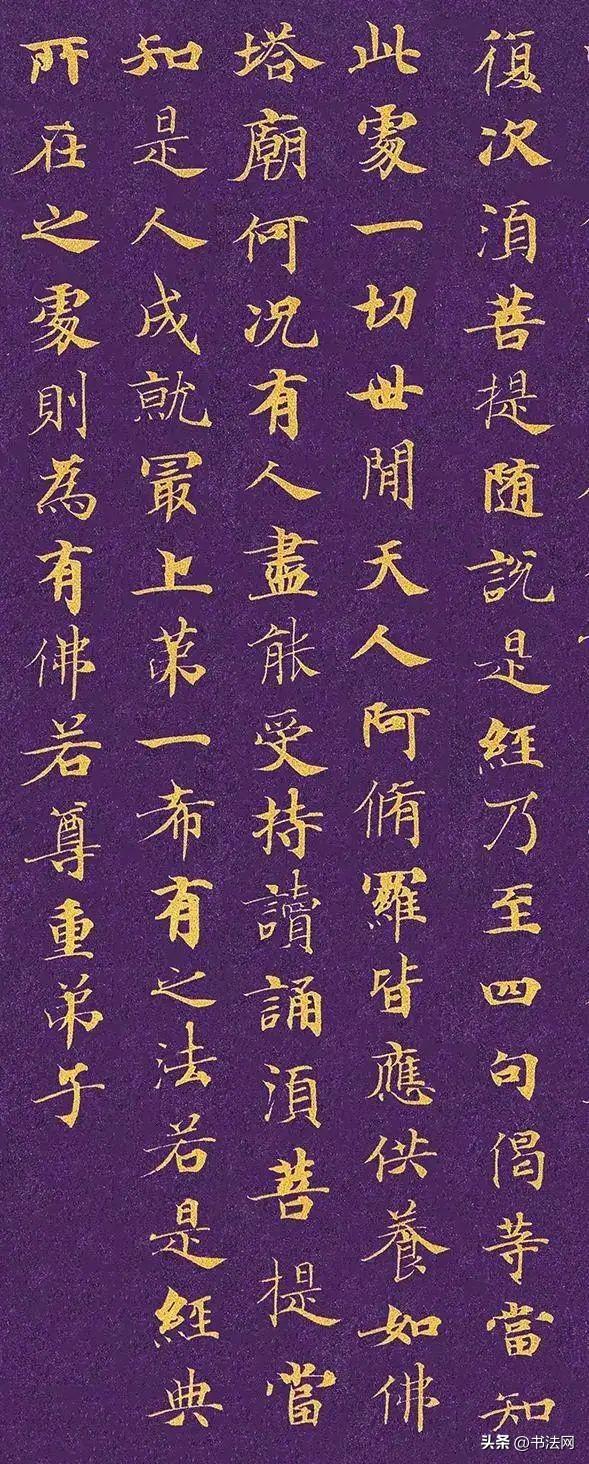 復次湏菩提随説是經乃至四句偈等當知
此處一切世間天人阿脩羅皆應供養如佛
塔廟何况有人盡能受持讀誦湏菩提當
知是人成就冣上苐一希有之法若是經典
所在之處則為有佛若尊重弟子
头条 @书法网